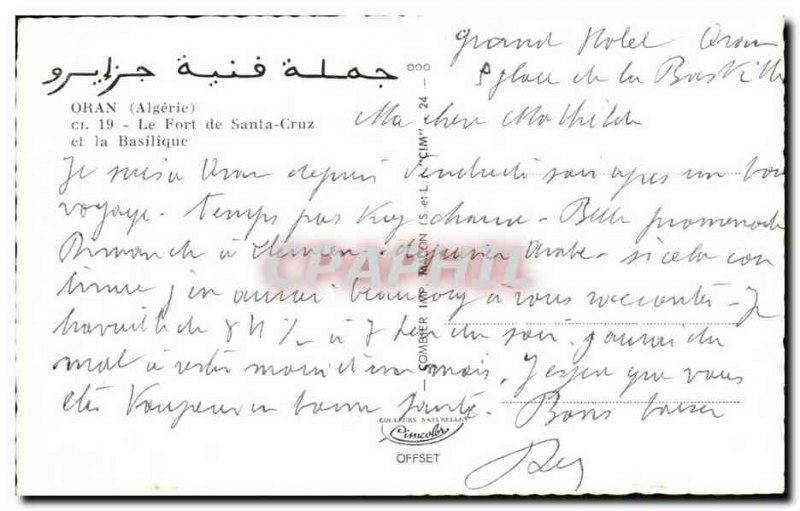 Grand Hotel Oran
5 place de la Bastille
جملة فنية جزايرو
ORAN (Algérie)
CI. 19 - Le Fort de Santa-Cruz
et la Basilique
Ma chère Mathilde
Je suis à Oran depuis Vendredi soir après un bon
voyage - temps pas trop chaud - Belle promenade
Dimanche à Tlemcen - déjeuner Arabe - si cela con
tinue j'en aurai beaucoup à vous raconter - Je
travaille de 8 H ½ à 7 heures du soir. J'aurai du
mal à rester moins d'un mois. J'espère que vous
êtes toujours en bonne santé. Bons baisers
COMBIER IMP. MACON (S.-et-L.) "CIM" 24 -
COULEURS NATURELLES
Cimcolor
OFFSET
CPAPHIL